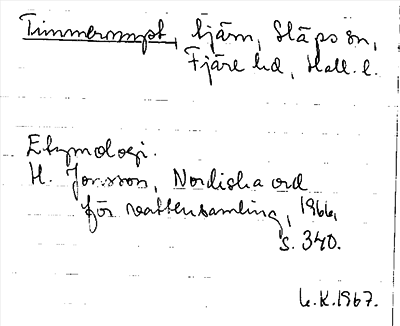 Timmerompt, tjärn, Släps sn,
Fjäre hd, Hall. l.
Etymologi.
H. Jonsson, Nordiska ord
för vattensamling, 1966,
s. 340.
L.K. 1967.